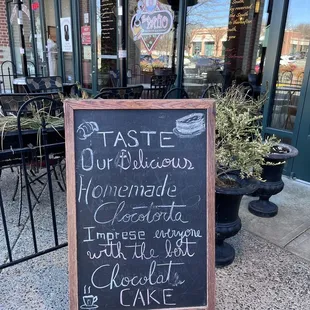 TASTE
Our Delicious
Homemade
Chocotorta
Imprese everyone
with the best
Chocolat
CAKE